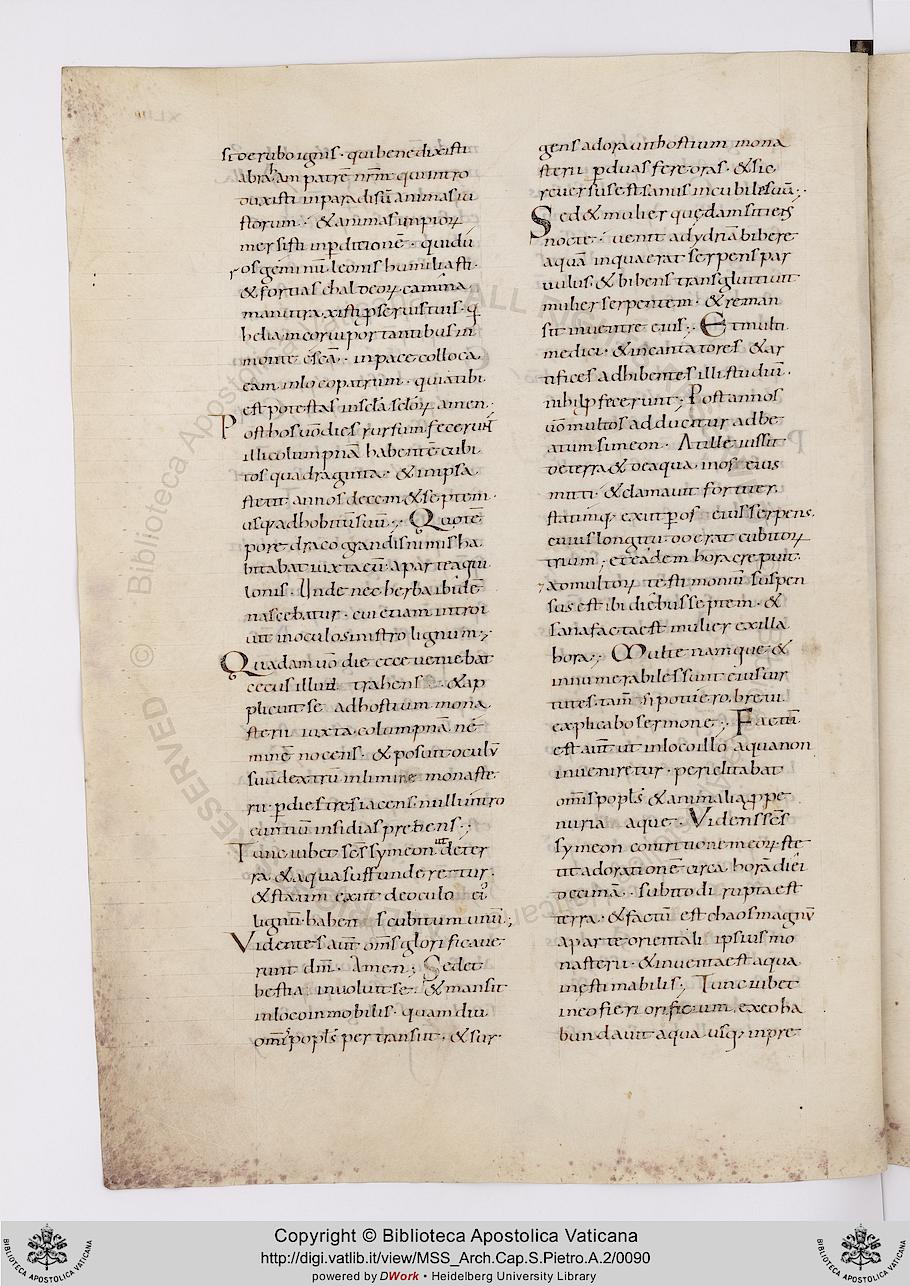 sti de rubo ignis · qui benedixisti
abraam patrē nr̄m qui intro
duxisti in paradisū animas iu
storum · & animas impiorꝝ
mersisti in pditionē · qui dū
os geminū leonis humiliasti ·
& fortias chaldeorꝝ camina
manu
helia me corui portantibus in
monte escā · in pace colloca
eam in loco patrum · quia tibi
est potestas in scl̄a scl̄orꝝ amen ·
Post hos uō dies rursum fecerunt
illi columpnā habentē cubi
tos quadraginta · & in ipsa
stetit annos decem & septem ·
usq; ad hobitū suū · Quo tē
pore draco grandis nimis ha
bitabat iuxta eū a parte aqui
lonis · Unde nec herba ibidē
nascebatur · cui etiam introi
uit in oculos in istro lignum ;
Quadam uō die ecce ueniebat
cecus illud trahens · & ap
plicuit se ad hostium mona
sterii iuxta columpnā ne
minē nocens · & posuit oculū
suū dextrū in limine monaste
rii · p dies tres iacens · nulli intro
euntium insidias prebens ;
Tunc iubet scs̄ symeon ut de ter
ra & aqua suffunderetur ·
& statim exiit de oculo ei'
lignū habens cubitum unū ;
Videntes aut̄ om̄s glorificaue
runt dm̄ · Amen ; Sed et
bestia inuoluit se · & mansit
in loco inmobilis · quam diu
om̄is popls̄ pertransiit · & sur
gens adorauit hostium mona
sterii p duas fere oras · & sic
reuersus est sanus in cubile suū ;
Sed & mulier quędam sitiens
nocte · uenit ad ydriā bibere
aquā in qua erat serpens par
uulus · & bibens transgluttiuit
mulier serpentem · & reman
sit in uentre eius ; Et multi
medici · & incantatores & ar
tifices adhibentes illi studiū ·
nihil pfecerunt ; Post annos
uō multos adducitur ad be
atum simeon · At ille iussit
de terra & de aqua in os eius
mitti · & clamauit fortiter
statimq; exiit p os eius serpens ·
cuius longitudo erat cubitorꝝ
trium ; et eadem hora crepuit ·
ad multorꝝ testimoniū suspen
sus est ibi diebus septem · &
sana facta est mulier ex illa
hora ; Multe namque &
innumerabiles sunt eius uir
tutes · tam̄ si potuero breui
explicabo sermone ; Factū
est aut̄ ut in loco illo aqua non
inueniretur · periclitabat
om̄is popls̄ & animalia p pe
nuria aque · Videns scs̄
symeon contritionem eorꝝ ste
tit ad orationē circa horā diei
decimā · subito dirupta est
terra · & factū est chaos magnū
a parte orientali ipsius mo
nasterii · & inuenta est aqua
inęstimabilis ; Tunc iubet
in eo fieri orificium · ex eo ha
bundauit aqua usq; in pre